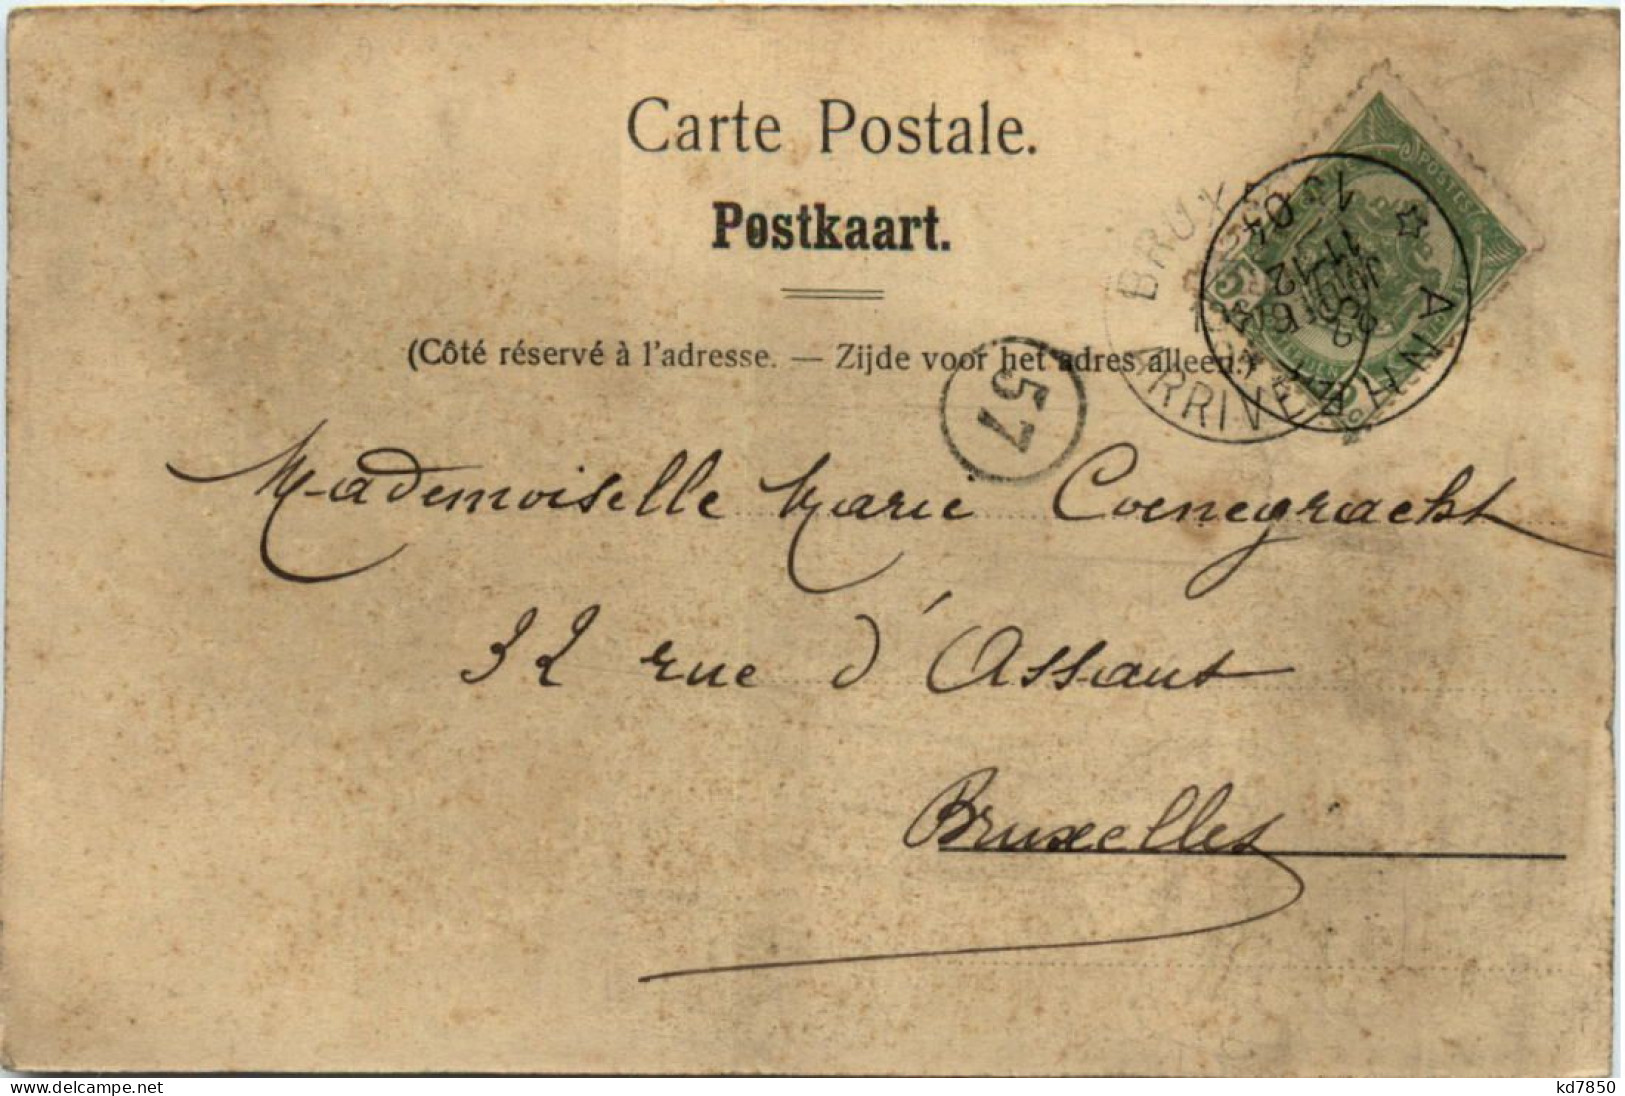 Carte Postale.
Postkaart.
(Côté réservé à l'adresse. — Zijde voor het adres alleen.)
57
BRUX
ARRIVÉE
ANH
POSTES
5
Mademoiselle Marie Coenegracht
32 rue d'Assaut
Bruxelles
kd7850